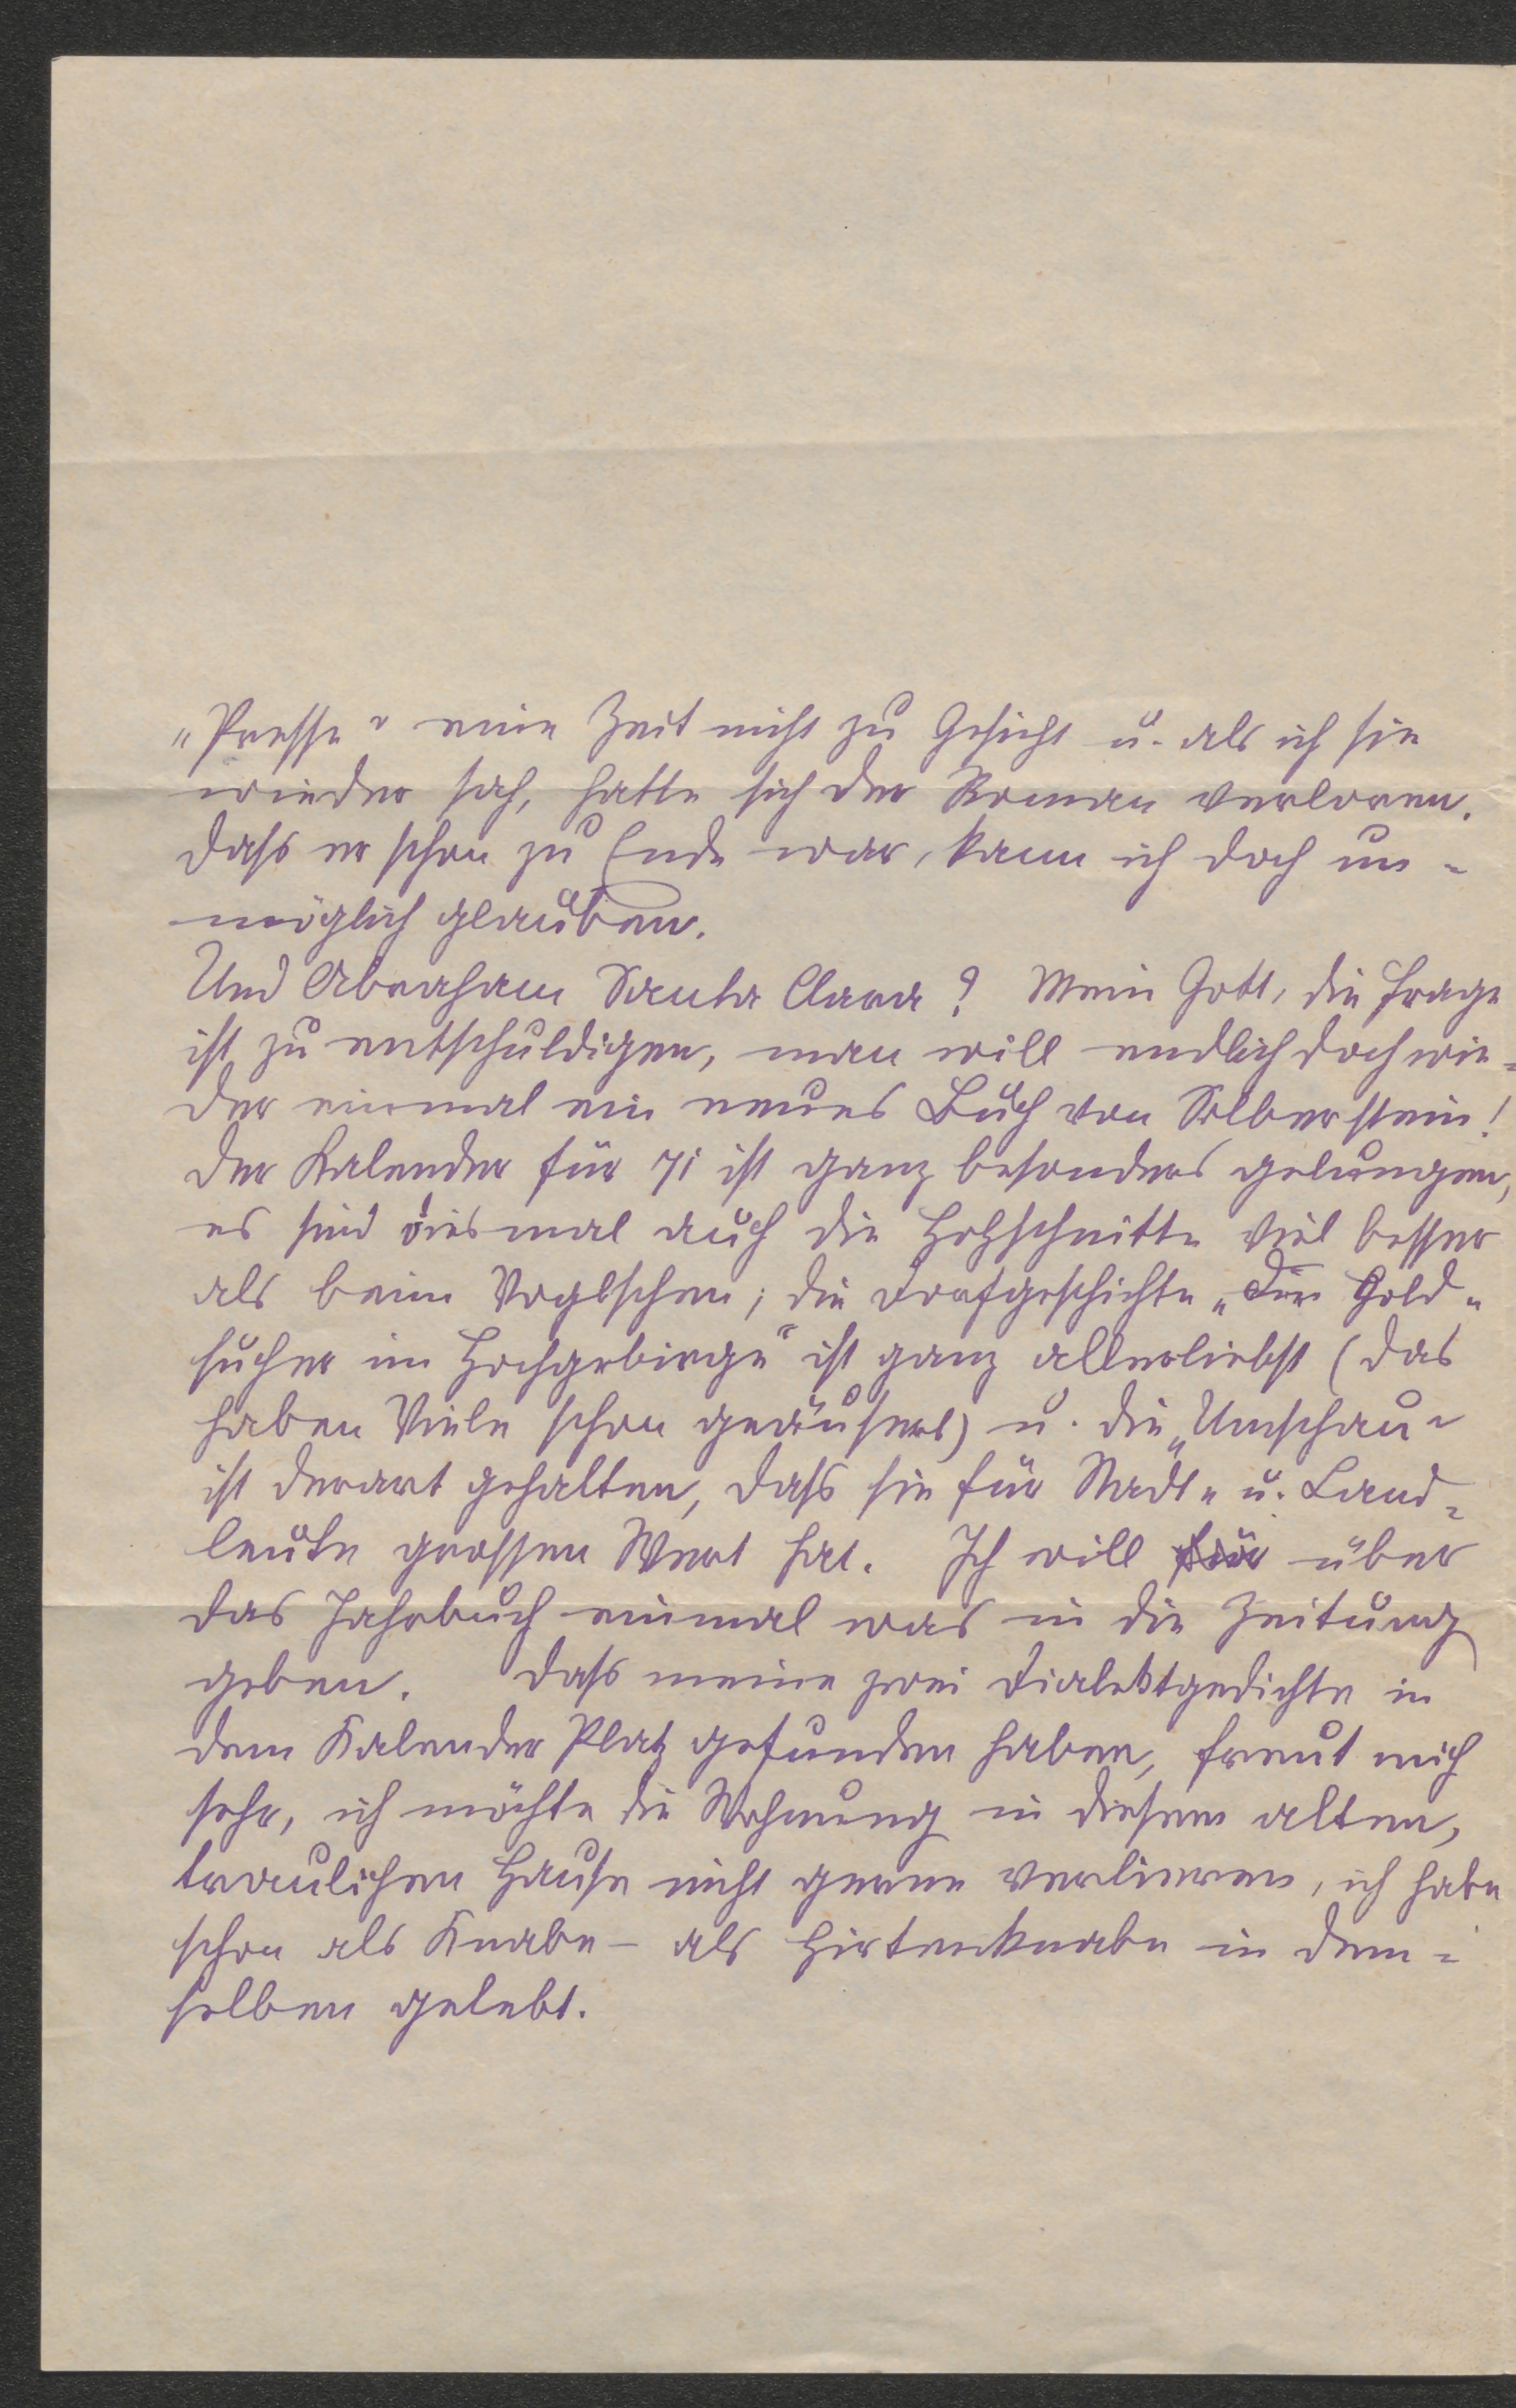 „Presse" eine Zeit nicht zu Gesicht u. als ich sie
wieder sah, hatte sich der Roman verloren.
Dass er schon zu Ende war, kann ich doch un-
möglich glauben.
Und Abraham Santa Clara? Mein Gott, die Frage
ist zu entschuldigen, man will endlich doch wie-
der einmal ein neues Buch von Silberstein!
Der Kalender für 71 ist ganz besonders gelungen,
es sind diesmal auch die Holzschnitte viel besser
als beim Voglschen; die Dorfgeschichte „Die Gold-
sucher im Hochgebirge" ist ganz allerliebst (das
haben Viele schon geäusert) u. die „Umschau"
ist derart gehalten, dass sie für Stadt- u. Land-
leute grossen Wert hat. Ich will für über
das Jahrbuch einmal was in die Zeitung
geben. Dass meine zwei Dialektgedichte in
dem Kalender Platz gefunden haben, freut mich
sehr, ich möchte die Wohnung in diesem alten,
traulichen Hause nicht gerne verlieren, ich habe
schon als Knabe – als Hirtenknabe in dem-
selben gelebt.